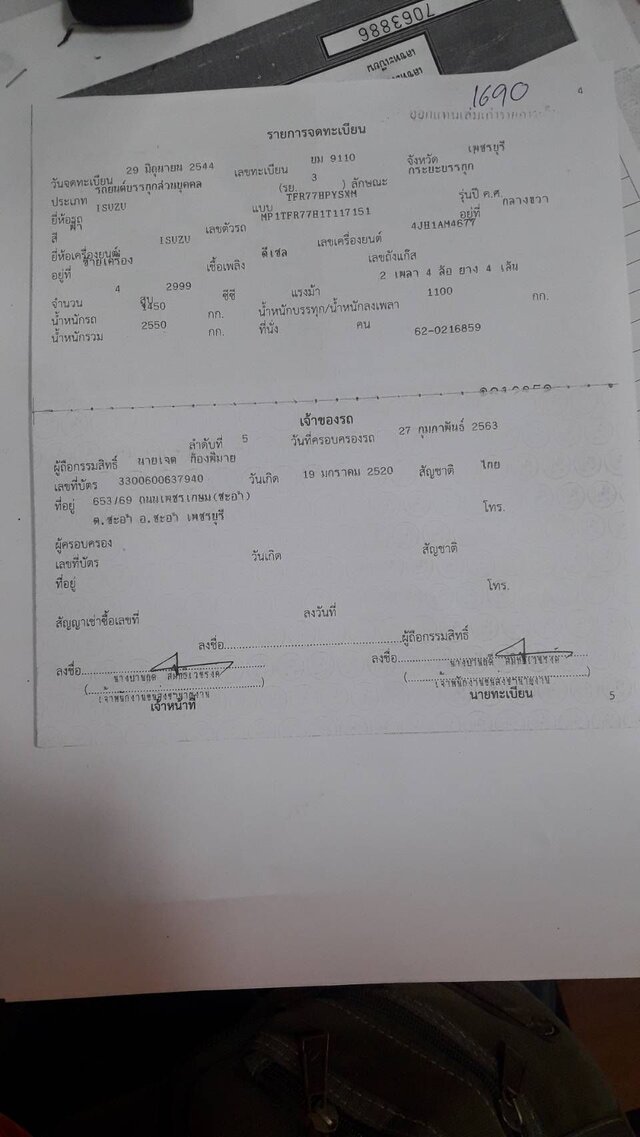 7063886
เลขทะเบียน
1690
4
รายการจดทะเบียน
วันจดทะเบียน 29 มิถุนายน 2544 เลขทะเบียน ยม 9110 จังหวัด เพชรบุรี
ประเภท รถยนต์บรรทุกส่วนบุคคล (รย 3 ) ลักษณะ กระบะบรรทุก
ยี่ห้อรถ ISUZU แบบ TFR77HPYSXM รุ่นปี ค.ศ.
สี ฟ้า เลขตัวรถ MP1TFR77H1T117151 อยู่ที่ กลางขวา
ยี่ห้อเครื่องยนต์ ISUZU เลขเครื่องยนต์ 4JH1AM4677
อยู่ที่ ซ้ายเครื่อง เชื้อเพลิง ดีเซล เลขถังแก๊ส
จำนวน 4 สูบ 2999 ซีซี แรงม้า 2 เพลา 4 ล้อ ยาง 4 เส้น
น้ำหนักรถ 1450 กก. น้ำหนักบรรทุก/น้ำหนักลงเพลา 1100 กก.
น้ำหนักรวม 2550 กก. ที่นั่ง คน 62-0216859
เจ้าของรถ
ลำดับที่ 5 วันที่ครอบครองรถ 27 กุมภาพันธ์ 2563
ผู้ถือกรรมสิทธิ์ นายเจต ก้องพิมาย
เลขที่บัตร 3300600637940 วันเกิด 19 มกราคม 2520 สัญชาติ ไทย
ที่อยู่ 653/69 ถนนเพชรเกษม(ชะอำ)
ต.ชะอำ อ.ชะอำ เพชรบุรี โทร.
ผู้ครอบครอง
เลขที่บัตร วันเกิด สัญชาติ
ที่อยู่ โทร.
สัญญาเช่าซื้อเลขที่ ลงวันที่
ลงชื่อ ผู้ถือกรรมสิทธิ์
ลงชื่อ ลงชื่อ
เจ้าพนักงานขนส่งชำนาญงาน เจ้าพนักงานขนส่งชำนาญงาน
เจ้าหน้าที่ นายทะเบียน
5